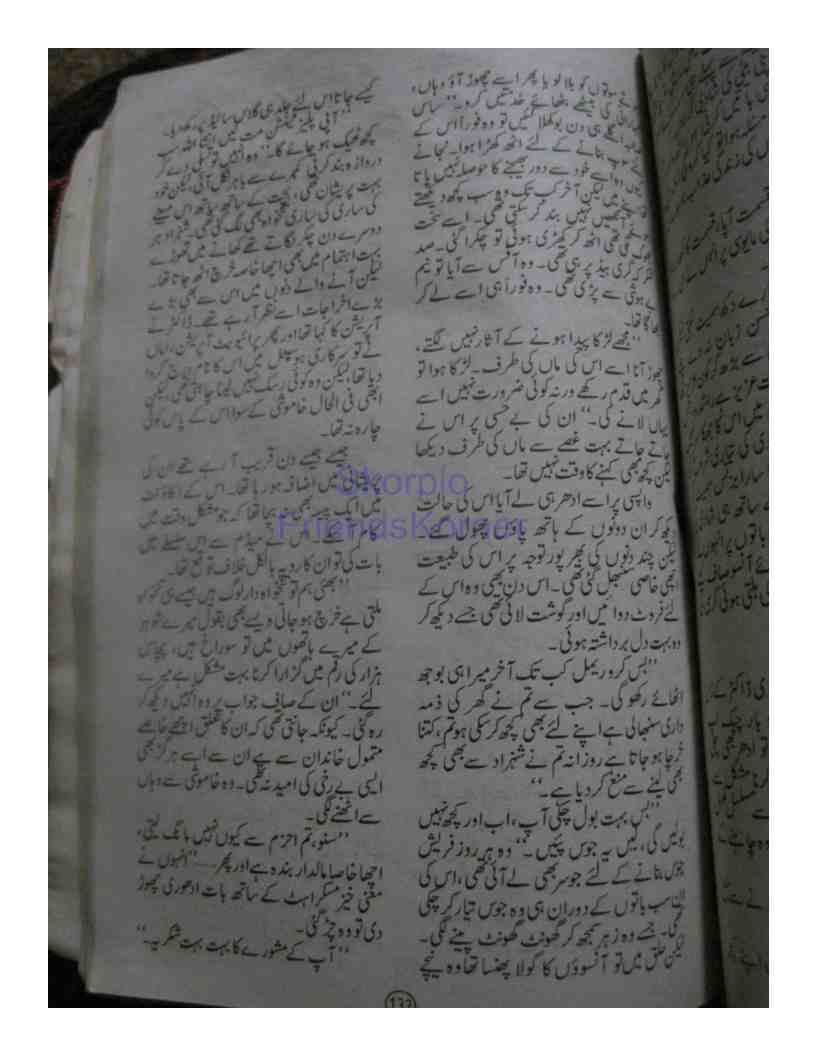 کو بلا لو یا پھر اسے چھوڑ آؤ وہاں،
کی بیٹھے بٹھائے خدمتیں کرو۔‘‘ ساس
اگلے ہی دن بوکھلا گئیں تو وہ فوراً اس کے
سوپ بنانے کے لئے اٹھ کھڑا ہوا۔ نجانے
دوا سے خود سے دور بھیجنے کا حوصلہ نہیں پاتا
میں لیکن آخر کب تک وہ سب کچھ دیکھتے
آنکھیں نہیں بند کر سکتی تھی۔ اسے سخت
بھوک لگی تھی اٹھ کر کھڑی ہوئی تو چکرا گئی۔ صد
شکر کہ گری بیڈ پر ہی تھی۔ وہ آفس سے آیا تو نیم
بے ہوشی سے پڑی تھی۔ وہ فوراً ہی اسے لے کر
بھاگا تھا۔
’’مجھے لڑکا پیدا ہونے کے آثار نہیں لگتے،
چھوڑ آنا اسے اس کی ماں کی طرف۔ لڑکا ہوا تو
گھر میں قدم رکھے ورنہ کوئی ضرورت نہیں اسے
یہاں لانے کی۔‘‘ ان کی بے حسی پر اس نے
جاتے جاتے بہت غصے سے ماں کی طرف دیکھا
لیکن کچھ بھی کہنے کا وقت نہیں تھا۔
واپسی پر اسے ادھر ہی لے آیا اس کی حالت
دیکھ کر ان دونوں کے ہاتھ پاؤں پھول گئے۔
لیکن چند دنوں کی بھرپور توجہ پر اس کی طبیعت
اچھی خاصی سنبھل گئی تھی۔ اس دن بھی وہ اس کے
لئے فروٹ دوائیں اور گوشت لائی تھی جسے دیکھ کر
وہ بہت دل برداشتہ ہوئی۔
’’بس کرو ریمل کب تک آخر میرا ہی بوجھ
اٹھائے رکھو گی۔ جب سے تم نے گھر کی ذمہ
داری سنبھالی ہے اپنے لئے بھی کچھ کر سکی ہو تم، کتنا
خرچا ہو جاتا ہے روزانہ تم نے شہزاد سے بھی کچھ
بھی لینے سے منع کر دیا ہے۔‘‘
’’بس بہت بول چکی آپ، اب اور کچھ نہیں
بولیں گی، لیں یہ جوس پئیں۔‘‘ وہ ہر روز فریش
جوس بنانے کے لئے جوسر بھی لے آئی تھی، اس کی
ان سب باتوں کے دوران ہی وہ جوس تیار کر چکی
تھی۔ جسے وہ زہر سمجھ کر گھونٹ گھونٹ پینے لگی۔
لیکن حلق میں تو آنسوؤں کا گولا پھنسا تھا وہ نیچے
کیسے جاتا اس لئے جلد ہی گلاس سائیڈ پر رکھ دیا۔
’’آپی پلیز ٹینشن مت لیں انشا اللہ سب
کچھ ٹھیک ہو جائے گا۔‘‘ وہ انہیں تو تسلی دے کر
دروازہ بند کرتی کمرے سے باہر نکل آئی، لیکن خود
بہت پریشان تھی، بچت کے ساتھ ساتھ اس مہینے
کی ساری کی ساری تنخواہ بھی لگ گئی تھی۔ شہزاد ہر
دوسرے دن چکر لگاتے تھے کھانے میں تھوڑے
بہت اہتمام میں بھی اچھا خاصہ خرچ اٹھ جاتا تھا۔
لیکن آنے والے دنوں میں اس سے بھی بڑے
بڑے اخراجات اسے نظر آ رہے تھے۔ ڈاکٹر نے
آپریشن کا کہا تھا اور پھر پرائیویٹ آپریشن، اماں
نے تو سرکاری ہوسپٹل میں اس کا نام درج کروا
دیا تھا، لیکن وہ کوئی رسک نہیں لینا چاہتی تھی، لیکن
ابھی فی الحال خاموشی کے سوا اس کے پاس کوئی
چارہ نہ تھا۔
جیسے جیسے دن قریب آ رہے تھے ان کی
پریشانی میں اضافہ ہو رہا تھا۔ اس کے اکاؤنٹ
میں ایک پیسہ بھی نہ بچا تھا کہ جو مشکل وقت میں
کام آ سکے۔ اس نے میڈم سے اس سلسلے میں
بات کی تو ان کا رویہ بالکل خلاف توقع تھا۔
’’بھئی ہم تو تنخواہ دار لوگ ہیں جیسے ہی تنخواہ
ملتی ہے خرچ ہو جاتی ویسے بھی بقول میرے شوہر
کے میرے ہاتھوں میں تو سوراخ ہیں، پچاس
ہزار کی رقم میں گزارا کرنا بہت مشکل ہے میرے
لئے۔‘‘ ان کے صاف جواب پر وہ انہیں دیکھ کر
رہ گئی۔ کیونکہ جانتی تھی کہ ان کا تعلق اچھے خاصے
متمول خاندان سے ہے ان سے اسے ہرگز بھی
ایسی بے رخی کی امید نہ تھی۔ وہ خاموشی سے وہاں
سے اٹھنے لگی۔
’’سنو، تم احزم سے کیوں نہیں مانگ لیتی،
اچھا خاصا مالدار بندہ ہے اور پھر .....‘‘ انہوں نے
معنی خیز مسکراہٹ کے ساتھ بات ادھوری چھوڑ
دی تو وہ چڑ گئی۔
’’آپ کے مشورے کا بہت بہت شکریہ۔‘‘
Skorpio
FriendsKorner
133